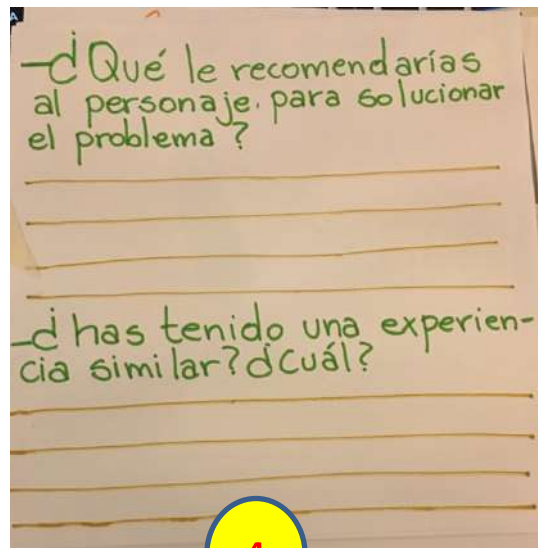 -¿Qué le recomendarías
al personaje. para solucionar
el problema?
-¿has tenido una experien-
cia similar? ¿Cuál?